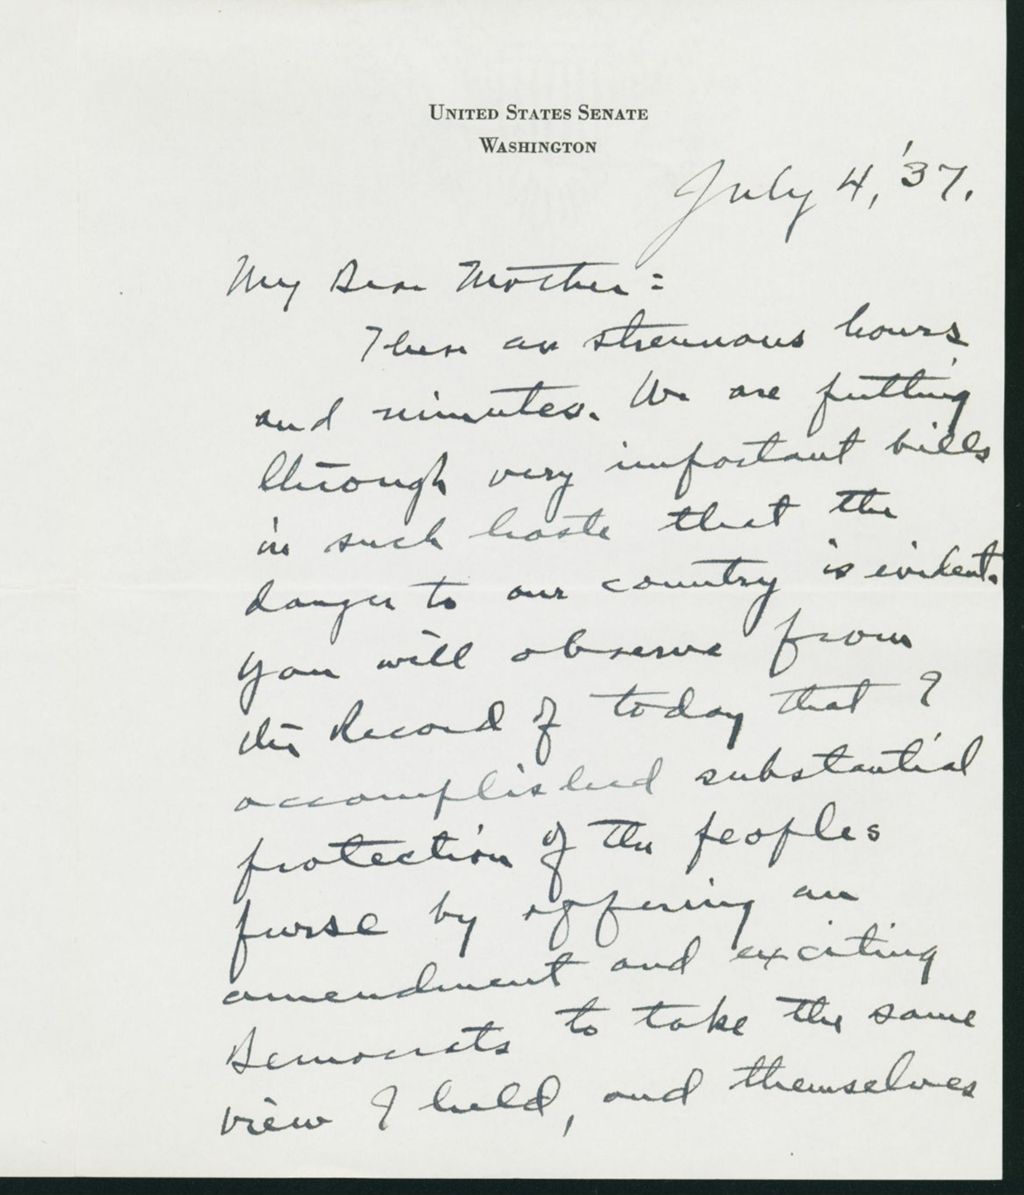 UNITED STATES SENATE
WASHINGTON
July 4, '37.
My Dear Mother:
These are strenuous hours
and minutes. We are putting
through very important bills
in such haste that the
danger to our country is evident.
You will observe from
the Record of today that I
accomplished substantial
protection of the peoples
purse by offering an
amendment and exciting
Democrats to take the same
view I held, and themselves